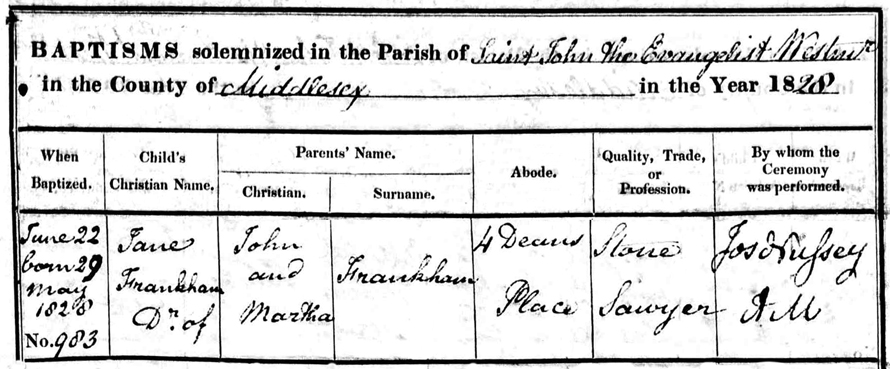 BAPTISMS solemnized in the Parish of Saint John the Evangelist Westmr
in the County of Middlesex in the Year 1828
When Baptized.
Child's Christian Name.
Parents' Name.
Christian.
Surname.
Abode.
Quality, Trade, or Profession.
By whom the Ceremony was performed.
June 22
born 29
May
1828
No. 983
Jane
Frankham
Dr. of
John
and
Martha
Frankham
4 Deans
Place
Stone
Sawyer
Jos Nussey
A M